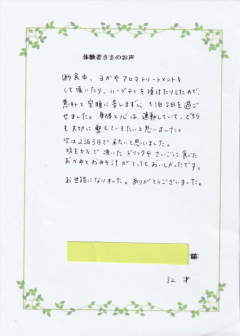 体験者さまのお声
断食中、ヨガやアロマトリートメントを
して頂いたり、ハーブティを頂けたりしたので、
意外と空腹に苦しまずに、1泊2日を過ご
せました。身体と心は連動していて、どちら
も大切に整えていきたいと思いました。
次は2泊3日で来たいと思いました。
頂いたドリンクやさいごに食べた
おかゆとおみそ汁がとってもおいしかったです。
お世話になりました。ありがとうございました。
様
32 才